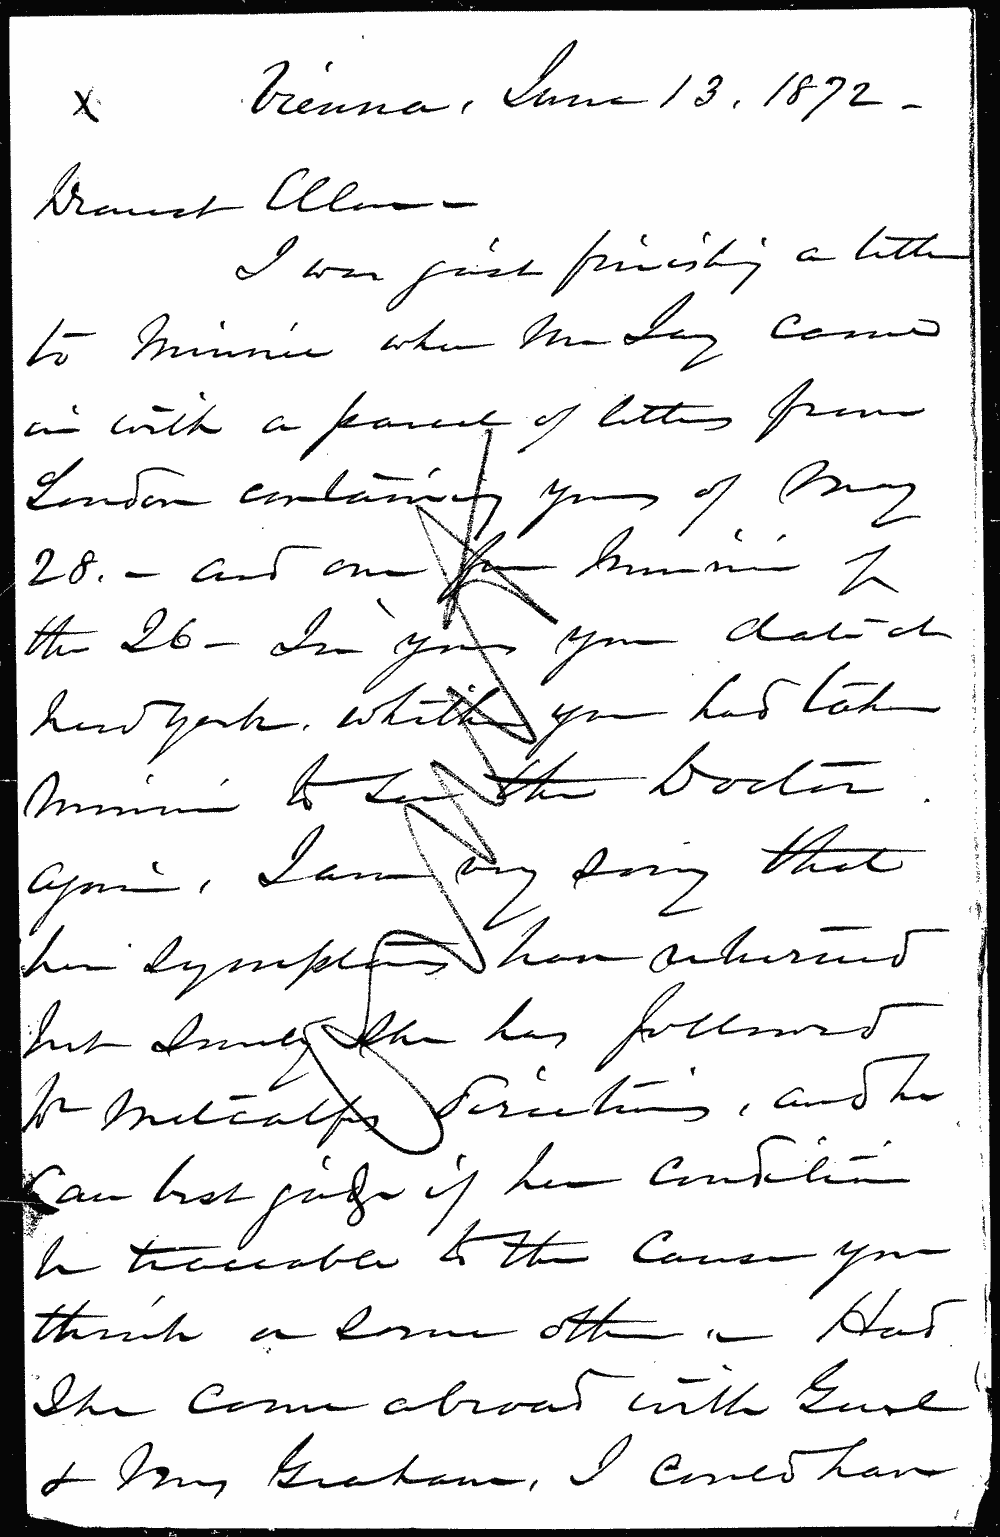 x Vienna, June 13. 1872 -
Dearest Ellen -
I was just finishing a letter
to Minnie when Mr Jay came
in with a parcel of letters from
London containing yours of May
28. - and one for Minnie of
the 26 - In yours you dated
New York. whither you had taken
Minnie to see the Doctor
again, I am very sorry that
her symptoms have returned
but surely she has followed
Dr Metcalfs directions, and he
can best judge if her condition
be traceable to the cause you
think or some other - Had
she come abroad with
& Mrs Graham, I could have